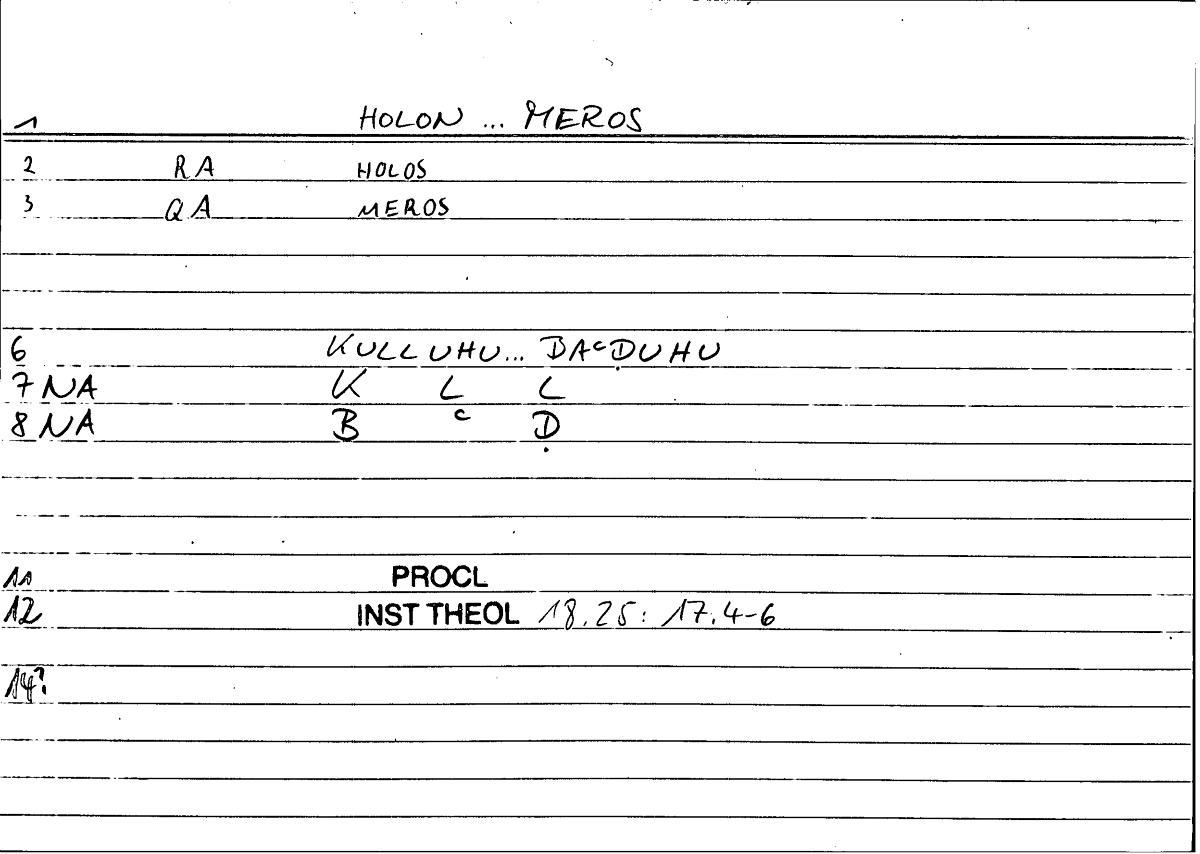 1 HOLON ... MEROS
2 RA HOLOS
3 QA MEROS
6 KULLUHU... BAᶜḌUHU
7 NA K L L
8 NA B ᶜ Ḍ
11 PROCL
12 INST THEOL 18.25: 17.4-6
14?